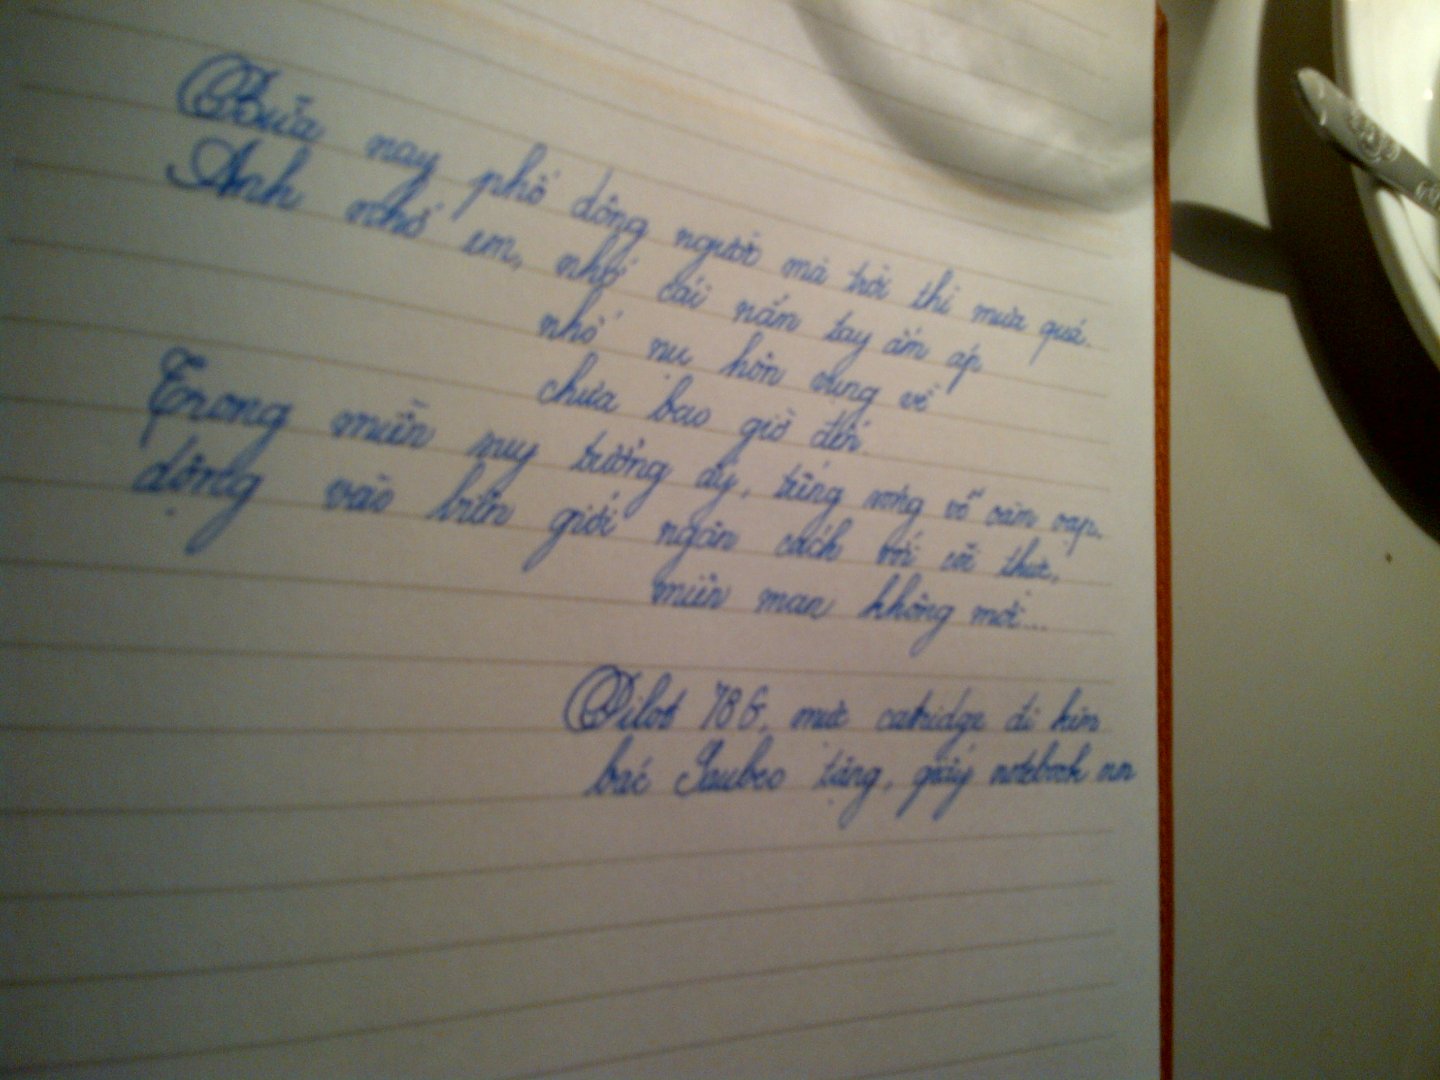 Bữa nay phố đông người mà trời thì mưa quá.
Anh nhớ em, nhớ cái nắm tay ấm áp
nhớ nụ hôn vụng về
chưa bao giờ đến.
Trong miền suy tưởng ấy, từng sóng vỗ oàm oạp.
động vào biên giới ngăn cách với cõi thực,
miên man không mới...
Pilot 78G, mực catridge đi kèm
bác Saubeo tặng, giấy notebook